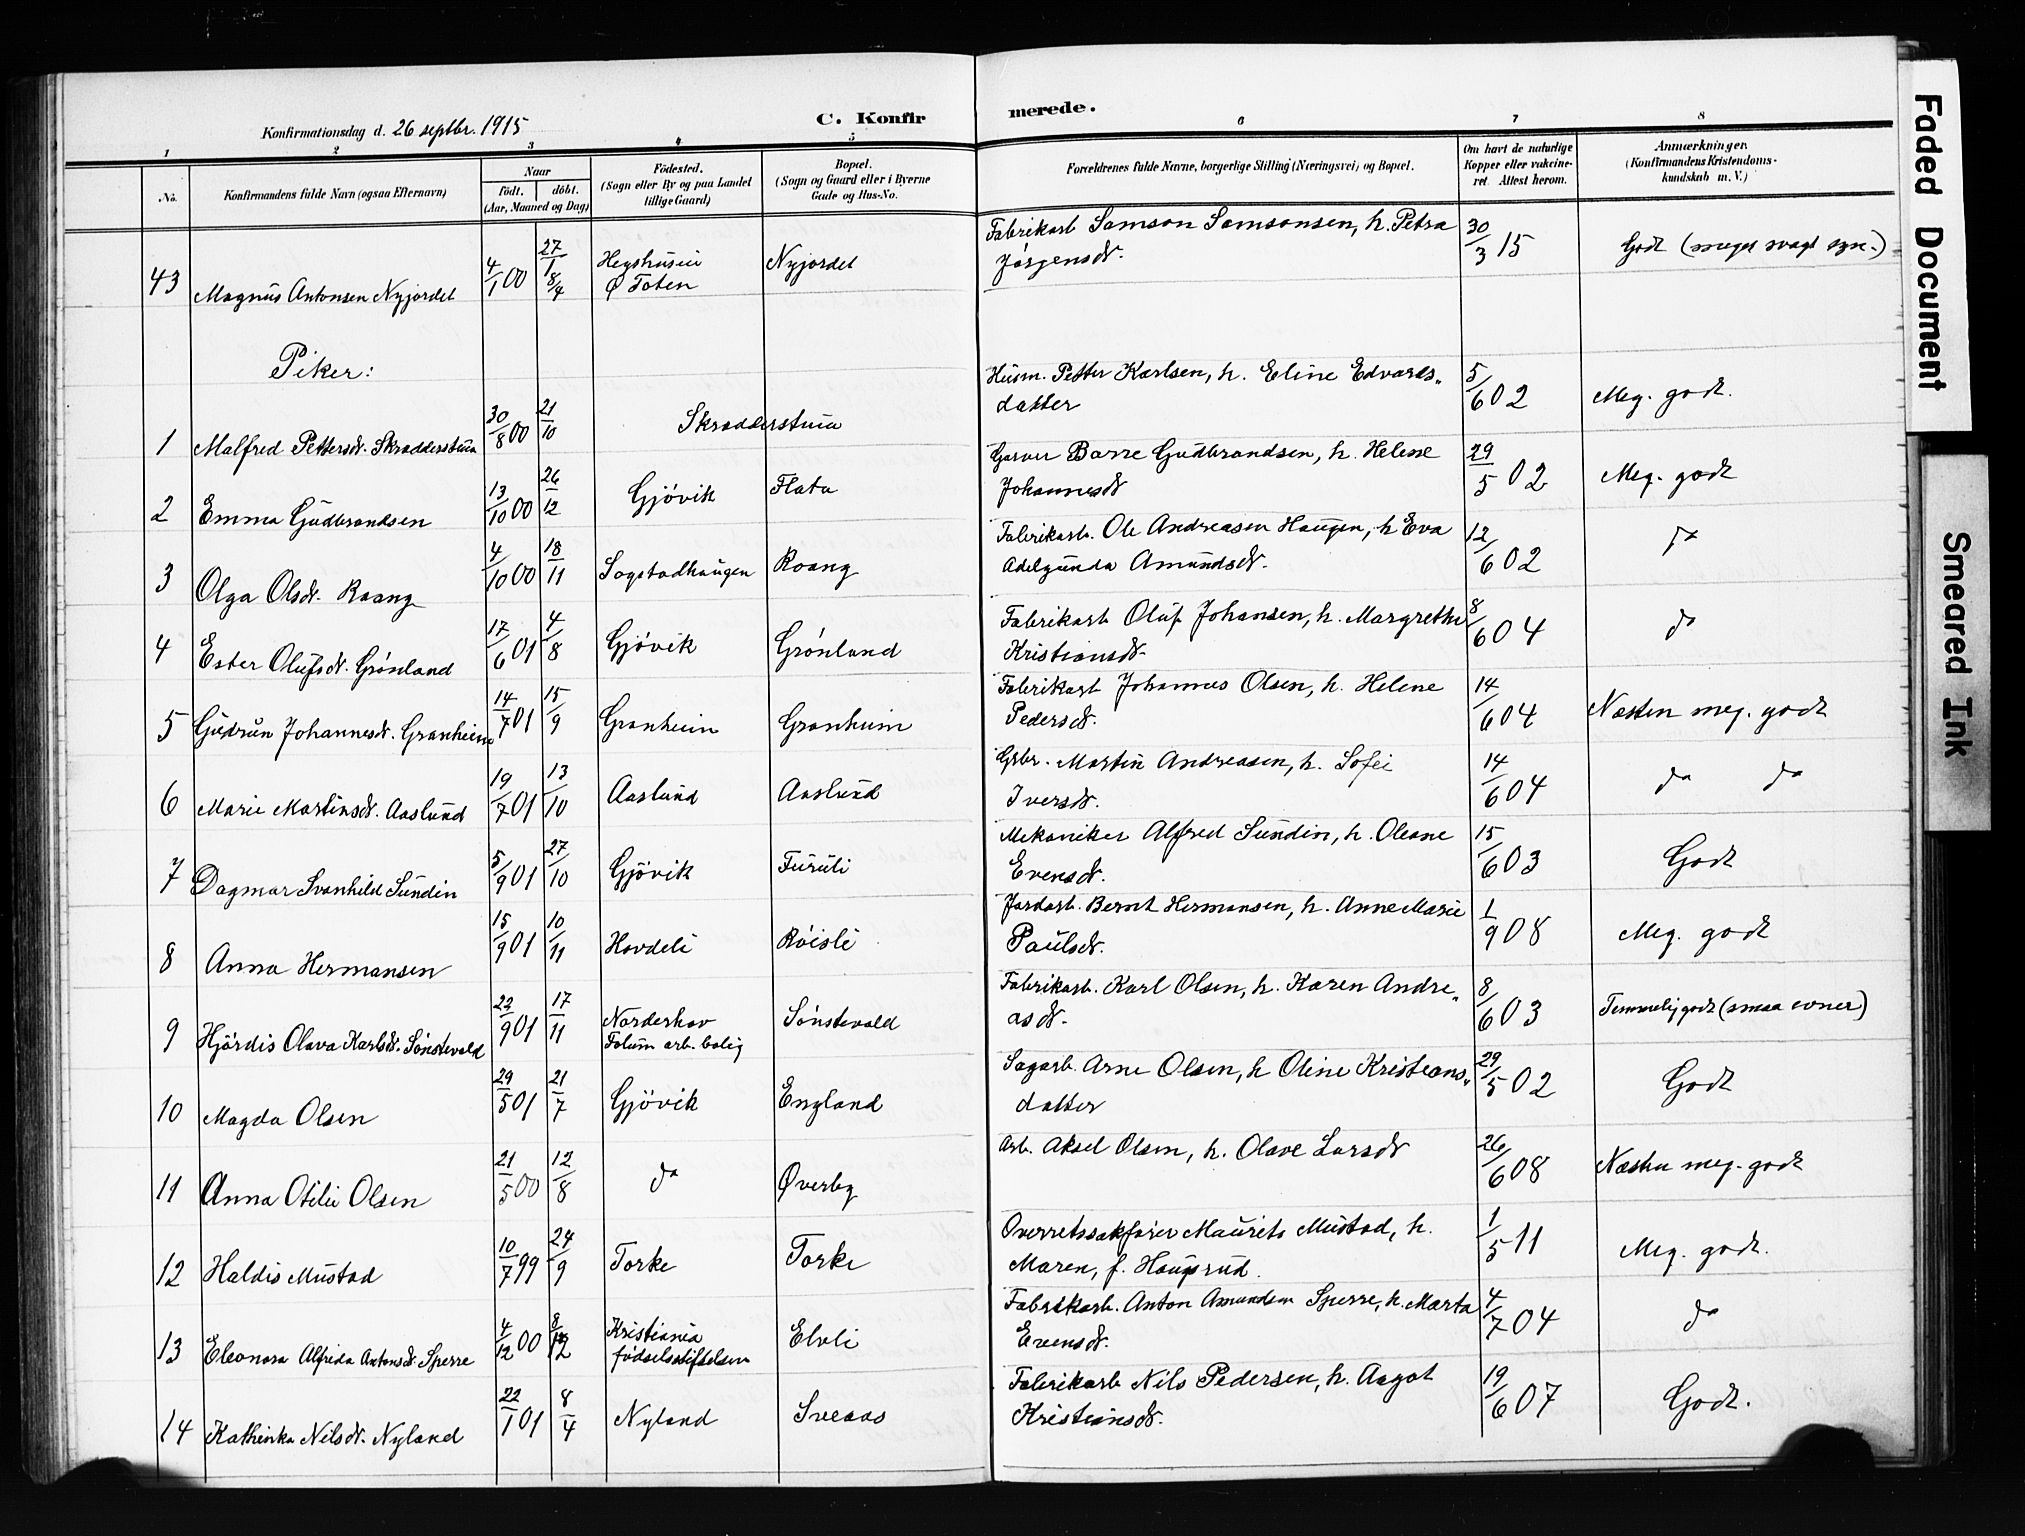 C. Konfirmerede.
Konfirmationsdag d. 26 septbr. 1915
1 2 3 4 5 6 7 8
No. Konfirmandens fulde Navn (ogsaa Efternavn) Naar födt. döbt. (Aar, Maaned og Dag) Födested. (Sogn eller By og paa Landet tillige Gaard) Bopæl. (Sogn og Gaard eller i Byerne Gade og Hus-No. Forældrenes fulde Navne, borgerlige Stilling (Næringsvei) og Bopæl. Om havt de naturlige Kopper eller vakcineret. Attest herom. Anmærkninger. (Konfirmandens Kristendomskundskab m. V.)
43 Magnus Antonsen Nyjordet 4/1 00 27/1 8/4 Hegshusein Ø Toten Nyjordet Fabrikarb Samson Samsonsen, h. Petra Jørgensdr. 30/3 15 Godt (meget svagt syn.)
Piker:
1 Malfred Pettersdr. Skrædderstuen 30/8 00 21/10 Skrædderstuen Husm. Petter Karlsen, h. Eline Edvardsdatter 5/6 02 Meg. godt.
2 Emma Gudbrandsen 13/10 00 26/12 Gjøvik Flata Garver Barre Gudbrandsen, h. Helene Johannesdr 29/5 02 Meg. godt
3 Olga Olsdr. Roang 4/10 00 18/11 Sogstadhaugen Roang Fabrikarb. Ole Andreasen Haugen, h Eva Adelgunda Amundsdr. 12/6 02 do
4 Ester Olufsdr. Grønland 17/6 01 4/8 Gjøvik Grønland Fabrikarb Oluf Johansen, h. Margrethe Kristiansdr. 8/6 04 do
5 Gudrun Johannesdr. Granheim 14/7 01 15/9 Granheim Granheim Fabrikarb Johannes Olsen, h. Helene Pedersdr. 14/6 04 Næsten meg. godt
6 Marie Martinsdr. Aaslund 19/7 01 13/10 Aaslund Aaslund Gbr. Martin Andreasen, h. Sofie Iversdr. 14/6 04 do do
7 Dagmar Svanhild Sundin 5/9 01 27/10 Gjøvik Furuli Mekaniker Alfred Sundin, h. Oleane Evensdr. 15/6 03 Godt
8 Anna Hermansen 15/9 01 10/11 Hovdeli Røisli Jordarb. Bernt Hermansen, h. Anne Marie Paulsdr. 1/9 08 Meg. godt
9 Hjørdis Olava Karlsdr. Sønstevold 22/9 01 17/11 Norderhov Folum arb. bolig Sønstevold Fabrikarb. Karl Olsen, h. Karen Andreasdr. 8/6 03 Temmelig godt (smaa evner)
10 Magda Olsen 29/5 01 21/7 Gjøvik England Sagarb. Arne Olsen, h Oline Kristiansdatter 29/5 02 Godt
11 Anna Otilie Olsen 21/5 00 12/8 do Øverby Arb. Aksel Olsen, h. Olave Larsdr 26/6 08 Næsten meg. godt
12 Haldis Mustad 10/7 99 24/9 Torke Torke Overretssakfører Maurits Mustad, h. Maren, f. Haugsrud. 1/5 11 Meg. godt.
13 Eleonora Alfrida Antonsdr. Sperre 4/12 00 8/12 Kristiania fødselsstiftelsen Elvli Fabrikarb. Anton Amundsen Sperre, h. Marta Evensdr. 4/7 04 do
14 Kathinka Nilsdr. Nyland 22/1 01 8/4 Nyland Sveaas Fabrikarb Nils Pedersen, h. Aagot Kristiansdr. 19/6 07 Godt.
Faded Document
Smeared Ink